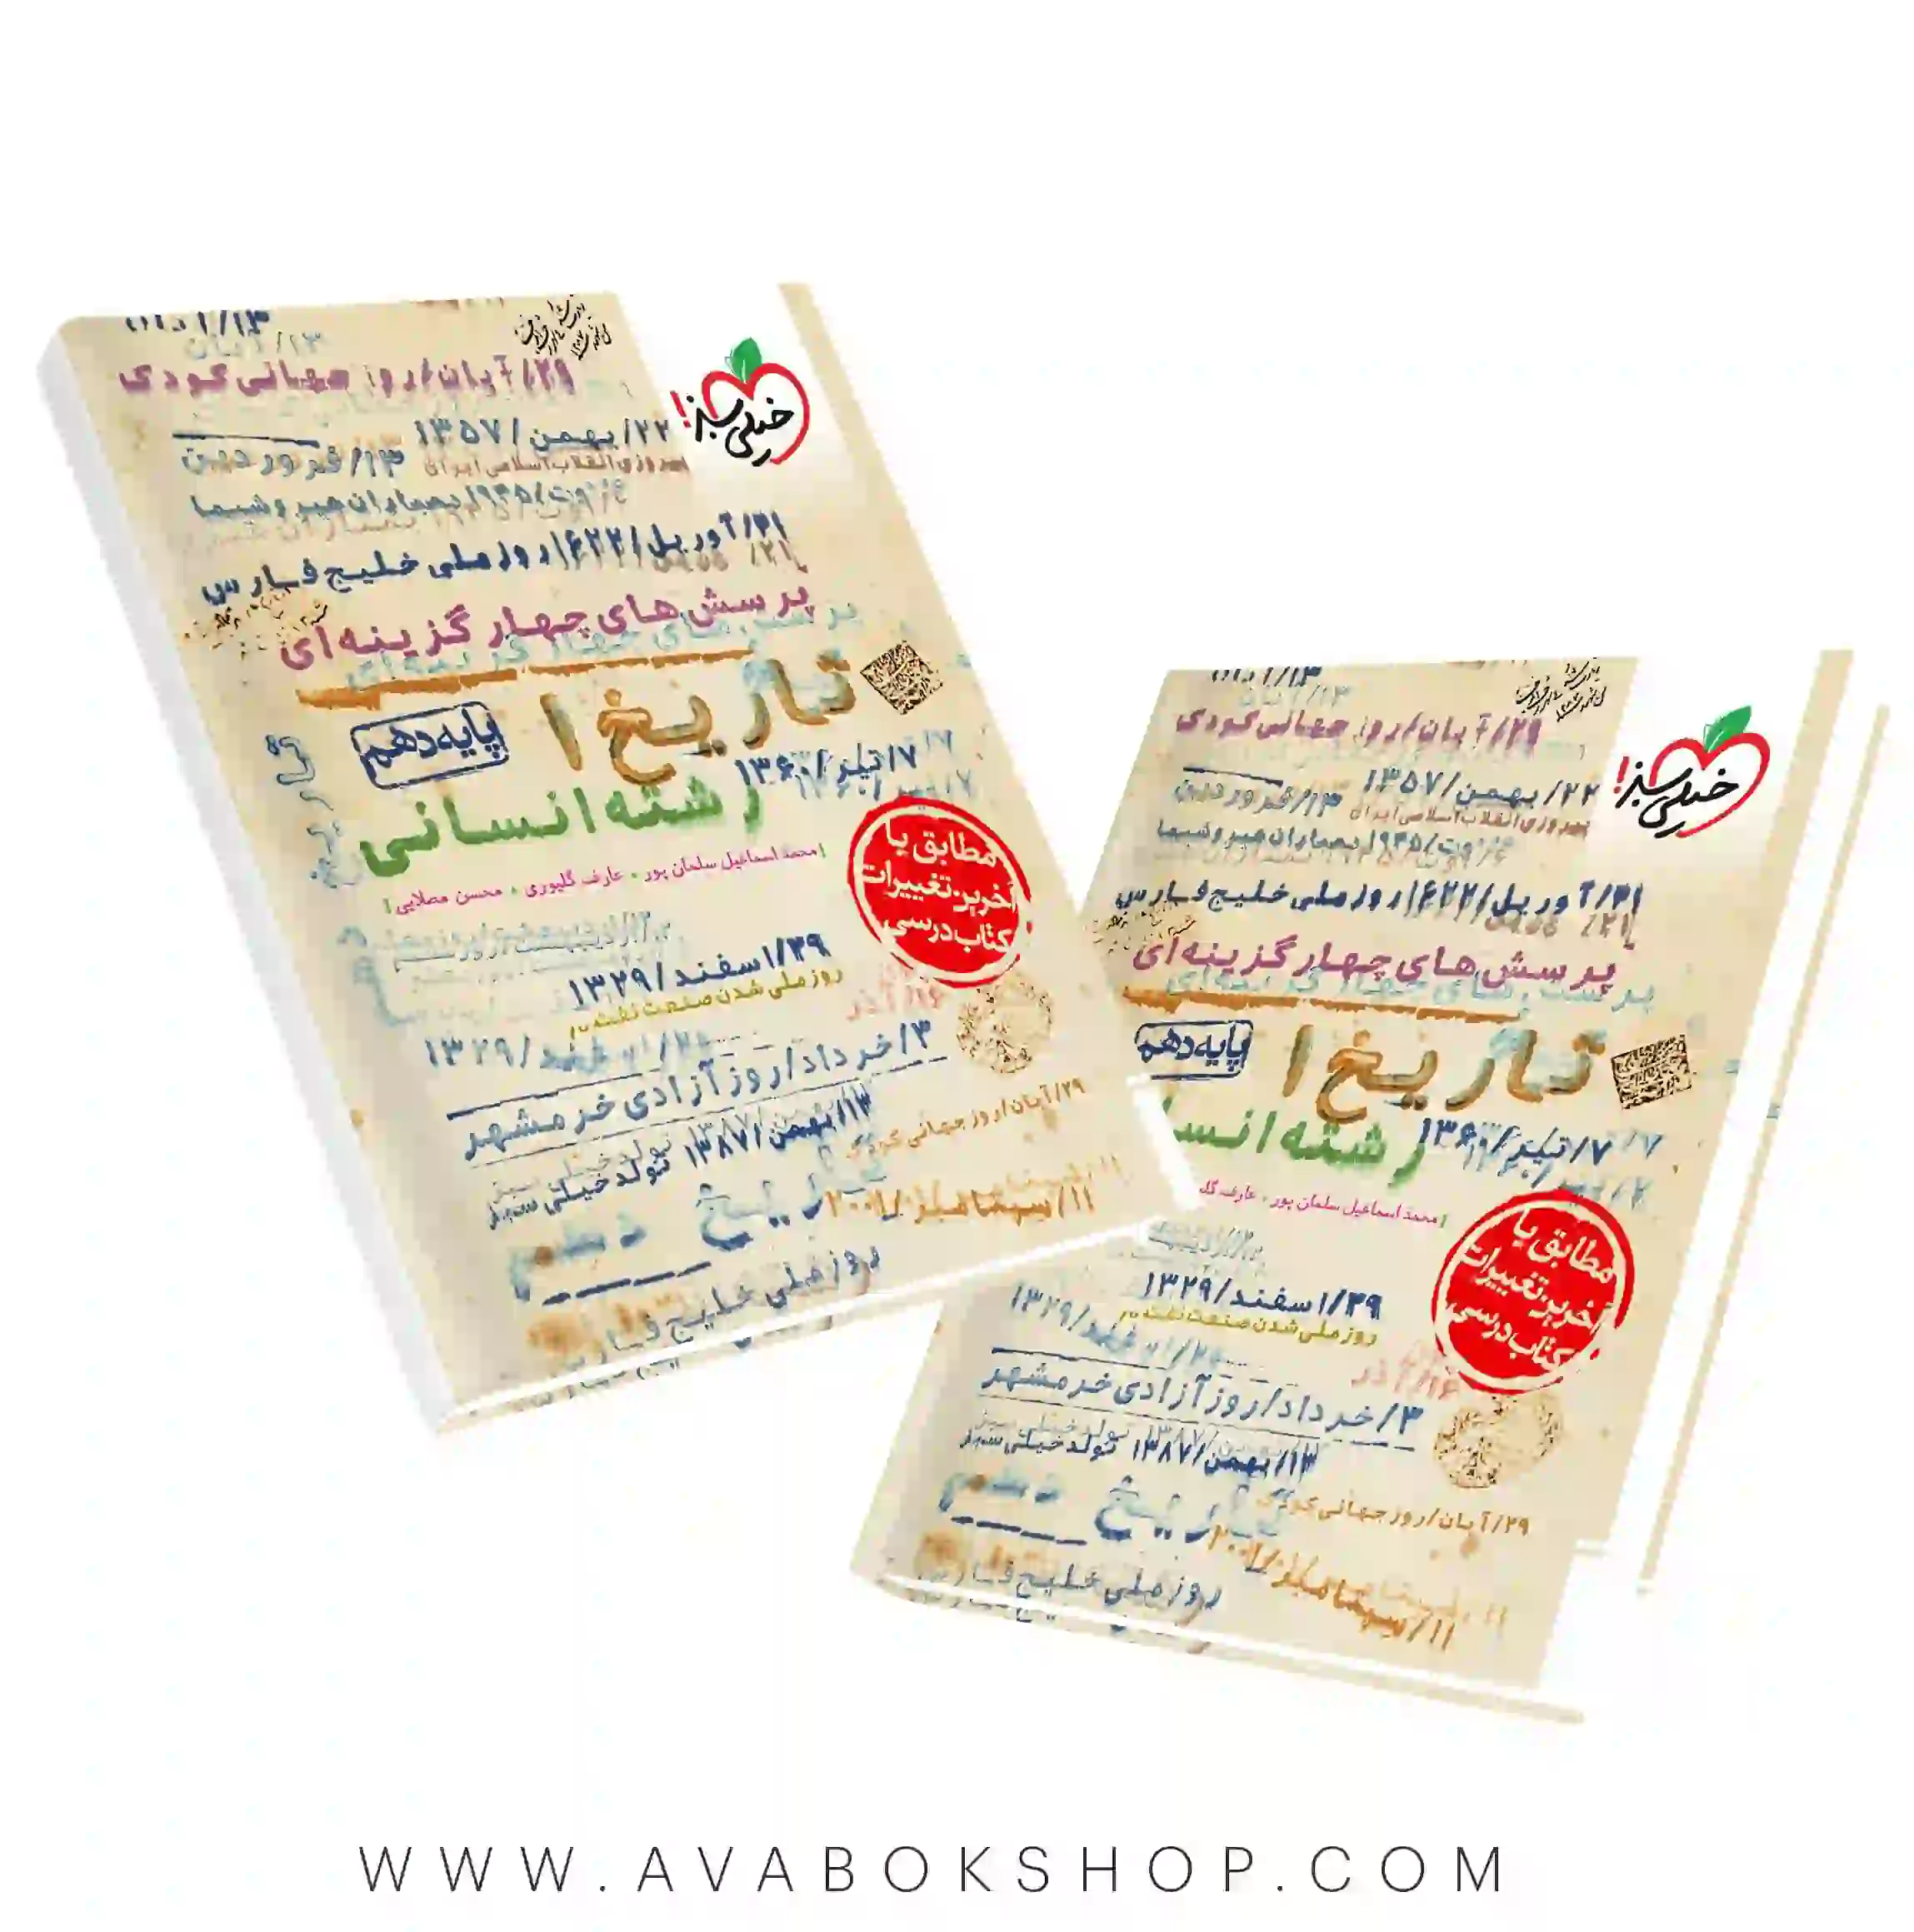 ۱۳/آبان
۲۹/آبان/روز جهانی کودک
خیلی سبز!
۲۲/بهمن/۱۳۵۷
۱۳/فروردین
پیروزی انقلاب اسلامی ایران
۱۹۴۵/بمباران هیروشیما
۲۱/آوریل/۱۶۲۲/روز ملی خلیج فارس
پرسش‌های چهار گزینه‌ای
تاریخ ۱
پایه دهم
۷/تیر/۱۳۶۰
رشته انسانی
محمد اسماعیل سلمان پور • عارف گلپوری • محسن مصلایی
مطابق با
آخرین تغییرات
کتاب درسی
۲۹/اسفند/۱۳۲۹
روز ملی شدن صنعت نفت
۱۶/آذر
۳/خرداد/روز آزادی خرمشهر
۱۳/بهمن/۱۳۸۷ تولد خیلی سبز
۲۹/آبان/روز جهانی کودک
۱۱/سپتامبر/۲۰۰۱
تاریخ دهم
روز ملی خلیج فارس
۱۳/آبان
۲۹/آبان/روز جهانی کودک
خیلی سبز!
۲۲/بهمن/۱۳۵۷
۱۳/فروردین
پیروزی انقلاب اسلامی ایران
۱۹۴۵/بمباران هیروشیما
۲۱/آوریل/۱۶۲۲/روز ملی خلیج فارس
پرسش‌های چهار گزینه‌ای
تاریخ ۱
پایه دهم
۷/تیر/۱۳۶۰
رشته انسا
محمد اسماعیل سلمان پور • عارف گل
مطابق با
آخرین تغییرات
کتاب درسی
۲۹/اسفند/۱۳۲۹
روز ملی شدن صنعت نفت
۱۶/آذر
۳/خرداد/روز آزادی خرمشهر
۱۳/بهمن/۱۳۸۷ تولد خیلی سبز
۲۹/آبان/روز جهانی کودک
۱۱/سپتامبر/۲۰۰۱
تاریخ دهم
روز ملی خلیج فارس
WWW.AVABOKSHOP.COM